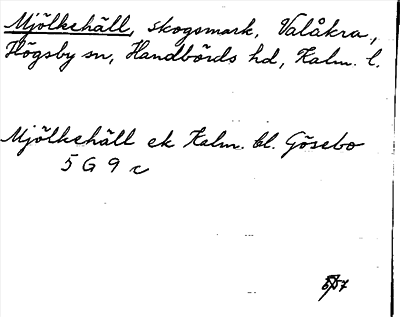 Mjölkehäll, skogsmark, Valåkra,
Högsby sn, Handbörds hd, Kalm. l.
Mjölkehäll ek Kalm. bl. Gösebo
5 G 9 c